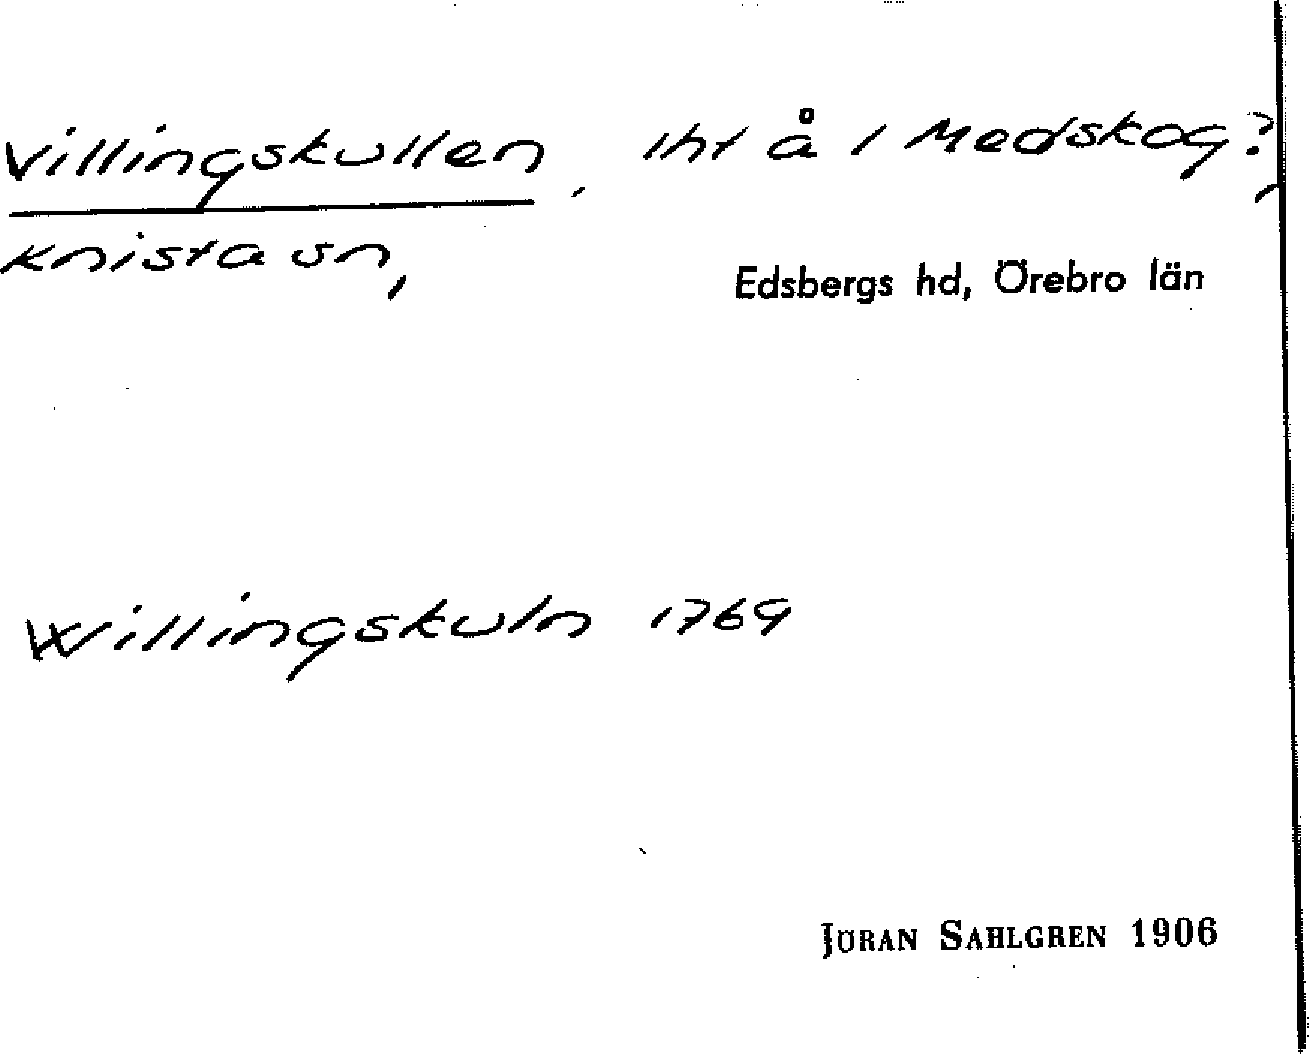 Villingskullen, iht å i Medskog?,
Knista sn,
Edsbergs hd, Örebro län
Willingskuln 1769
JÖRAN SAHLGREN 1906